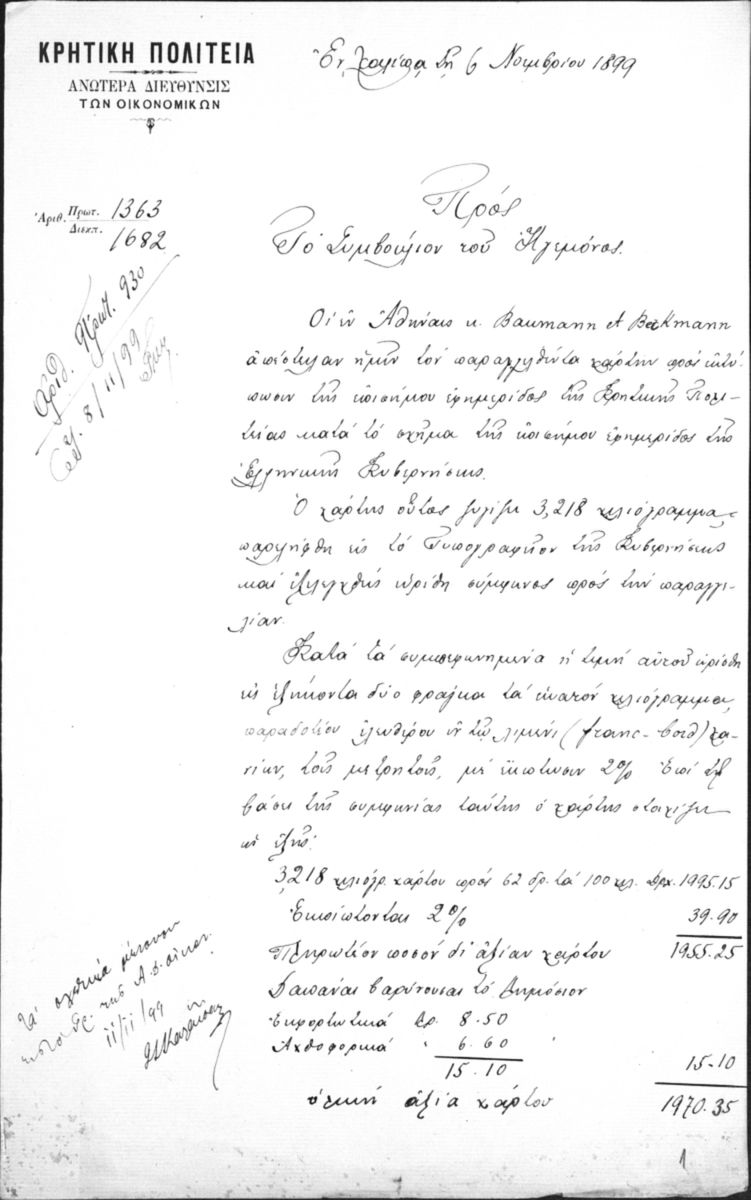 ΚΡΗΤΙΚΗ ΠΟΛΙΤΕΙΑ
ΑΝΩΤΕΡΑ ΔΙΕΥΘΥΝΣΙΣ
ΤΩΝ ΟΙΚΟΝΟΜΙΚΩΝ
Ἐν Χαλέπᾳ τῇ 6 Νοεμβρίου 1899
Ἀριθ. Πρωτ. 1363
Διεκπ. 1682
Ἀριθ. Πρωτ. 930
8/11/99
Πρός
Τό Συμβούλιον τοῦ Ἡγεμόνος.
Οἱ ἐν Ἀθήναις κ. Baumann et Beckmann
ἀπέστειλαν ἡμῖν τόν παραγγελθέντα χάρτην πρός ἐκτύ-
πωσιν τῆς ἐπισήμου ἐφημερίδος τῆς Κρητικῆς Πολι-
τείας κατά τό σχῆμα τῆς ἐπισήμου ἐφημερίδος τῆς
Ἑλληνικῆς Κυβερνήσεως.
Ὁ χάρτης οὗτος ζυγίζει 3,218 χιλιόγραμμα,
παρελήφθη εἰς τό Τυπογραφεῖον τῆς Κυβερνήσεως
καί ἐξελεγχθείς εὑρέθη σύμφωνος πρός τήν παραγγε-
λίαν.
Κατά τά συμπεφωνημένα ἡ τιμή αὐτοῦ ὡρίσθη
εἰς ἑξήκοντα δύο φράγκα τά ἑκατόν χιλιόγραμμα,
παραδοτέου ἐλευθέρου ἐν τῷ λιμένι (franc-bord) Χα-
νίων, τοῖς μετρητοῖς, μέ ἔκπτωσιν 2% Ἐπί τῇ
βάσει τῆς συμφωνίας ταύτης ὁ χάρτης στοιχίζει
ὡς ἑξῆς:
3,218 χιλιόγρ. χάρτου πρός 62 δρ. τά 100 χιλ. Δρχ. 1995.15
Ἐκπίπτονται 2% 39.90
Πληρωτέον ποσόν δι' ἀξίαν χάρτου 1955.25
Δαπάναι βαρύνουσαι τό Δημόσιον
Ἐκφορτωτικά Δρ. 8.50
Ἀχθοφορικά " 6.60
15.10 15.10
ὁλική ἀξία χάρτου 1970.35
Τά σχετικά μένουσιν
τῆς Α.Δ. Οἰκον.
11/11/99
1